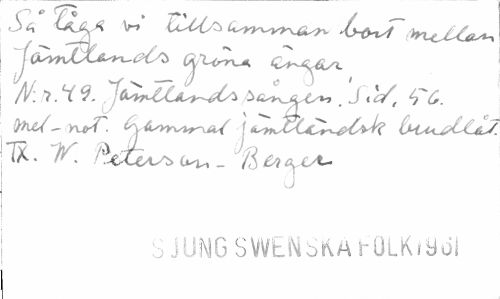 Så tåga vi tillsamman bort mellan
Jämtlands gröna ängar
N:r.49. Jämtlandssången. Sid. 56.
mel-not. Gammal jämtländsk brudlåt.
Tx. W. Peterson-Berger
SJUNG SWENSKA FOLK 1961